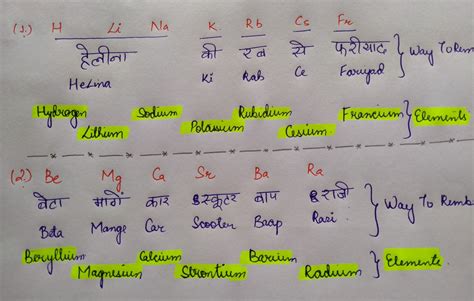 (1.) H Li Na K Rb Cs Fr
हेलीना की रब से फरीयाद } Way To Rem
HeLina Ki Rab Ce Faruyad
Hydrogen Sodium Rubidium Francium } Elements
Lithium Potassium Cesium
(2.) Be Mg Ca Sr Ba Ra
बेटा मांगे कार स्कूटर बाप राजी } Way To Remb
Beta Mange Car Scooter Baap Razi
Beryllium Calcium Barium } Elements
Magnesium Strontium Radium